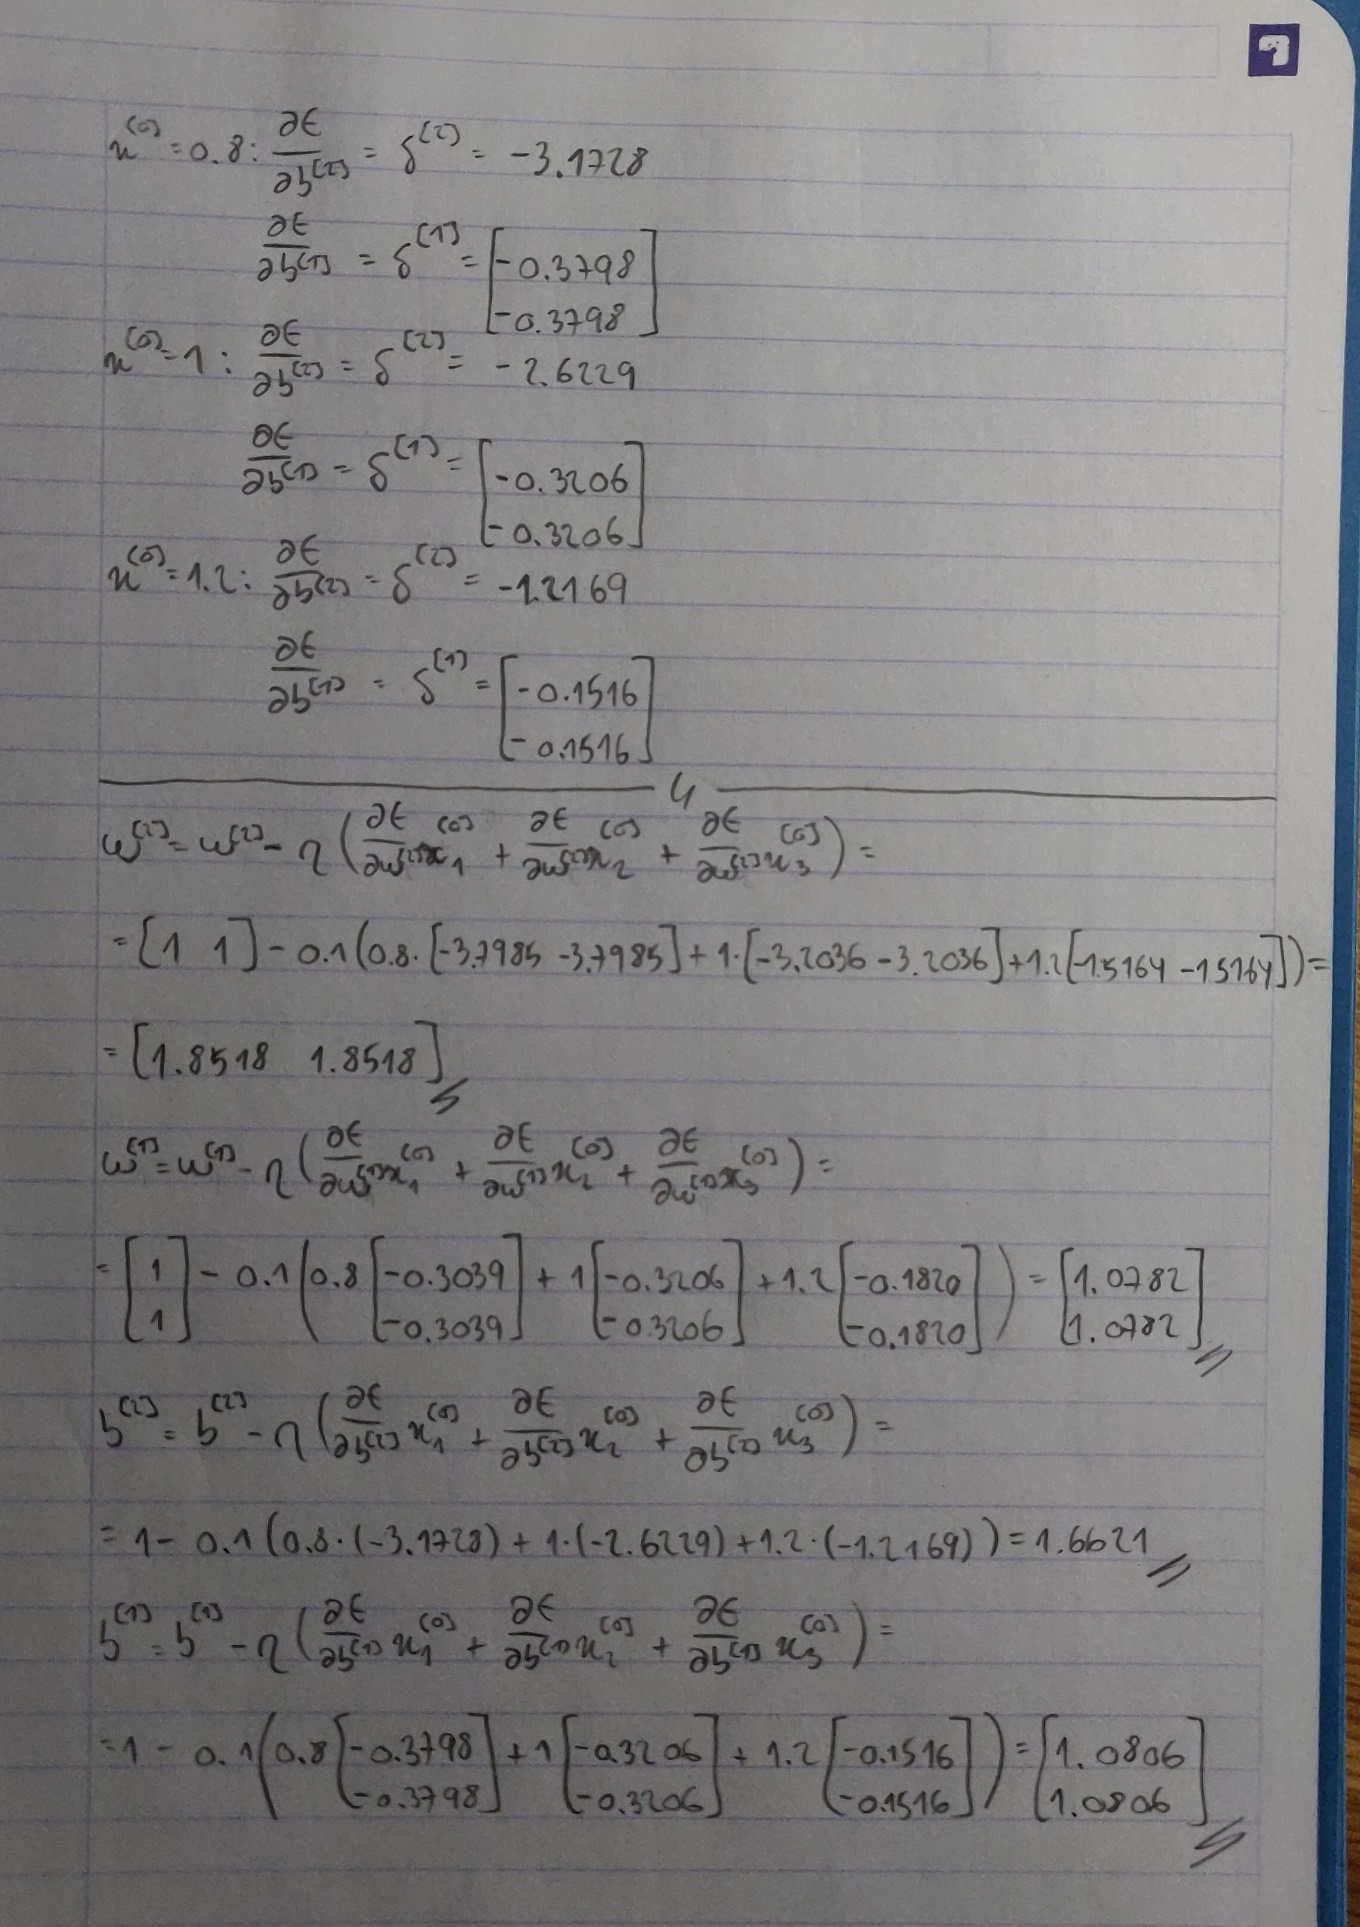 x^(0) = 0.8 : ∂E/∂b^(2) = δ^(2) = -3.1728
∂E/∂b^(1) = δ^(1) = [-0.3798
-0.3798]
x^(0) = 1 : ∂E/∂b^(2) = δ^(2) = -2.6229
∂E/∂b^(1) = δ^(1) = [-0.3206
-0.3206]
x^(0) = 1.2 : ∂E/∂b^(2) = δ^(2) = -1.2169
∂E/∂b^(1) = δ^(1) = [-0.1516
-0.1516]
4
w^(2) = w^(2) - η (∂E/∂w^(2) x_1^(0) + ∂E/∂w^(2) x_2^(0) + ∂E/∂w^(2) x_3^(0)) =
= [1 1] - 0.1 (0.8 · [-3.7985 -3.7985] + 1 · [-3.2036 -3.2036] + 1.2 [-1.5164 -1.5164]) =
= [1.8518 1.8518]
w^(1) = w^(1) - η (∂E/∂w^(1) x_1^(0) + ∂E/∂w^(1) x_2^(0) + ∂E/∂w^(1) x_3^(0)) =
= [1 - 0.1 (0.8 [-0.3039 + 1 [-0.3206 + 1.2 [-0.1820 ) = [1.0782
1] -0.3039] -0.3206] -0.1820] 1.0782]
b^(2) = b^(2) - η (∂E/∂b^(2) x_1^(0) + ∂E/∂b^(2) x_2^(0) + ∂E/∂b^(2) x_3^(0)) =
= 1 - 0.1 (0.8 · (-3.1728) + 1 · (-2.6229) + 1.2 · (-1.2169)) = 1.6621
b^(1) = b^(1) - η (∂E/∂b^(1) x_1^(0) + ∂E/∂b^(1) x_2^(0) + ∂E/∂b^(1) x_3^(0)) =
= 1 - 0.1 (0.8 [-0.3798 + 1 [-0.3206 + 1.2 [-0.1516 ) = [1.0806
-0.3798] -0.3206] -0.1516] 1.0806]